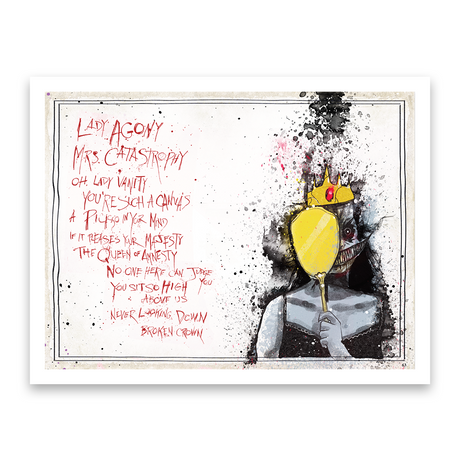 LADY AGONY
MRS. CATASTROPHY
OH, LADY VANITY
YOU'RE SUCH A CANVAS
A PICASSO IN YOUR MIND
IF IT PLEASES YOUR MAJESTY
THE QUEEN OF AMNESTY
NO ONE HERE CAN JUDGE YOU
YOU SIT SO HIGH
ABOVE US
NEVER LOOKING DOWN
BROKEN CROWN